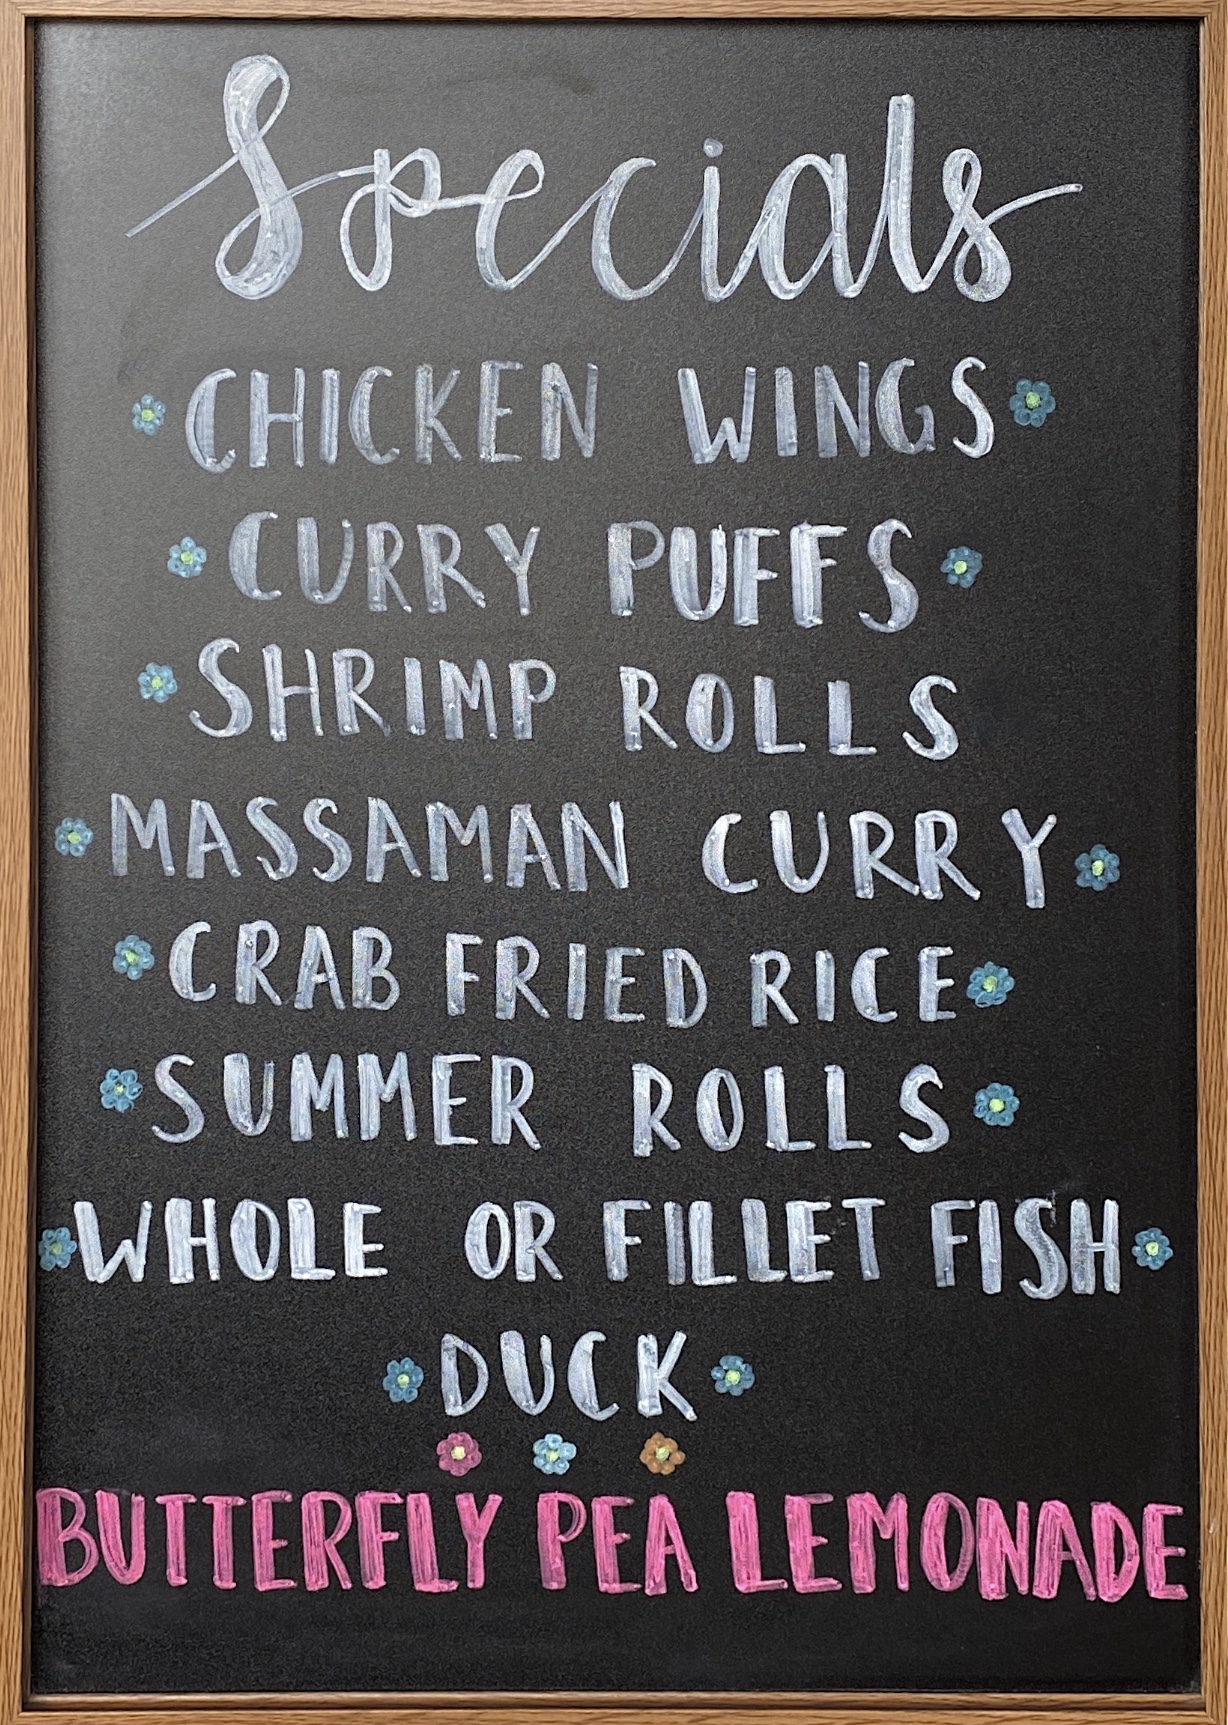 Specials
CHICKEN WINGS
CURRY PUFFS
SHRIMP ROLLS
MASSAMAN CURRY
CRAB FRIED RICE
SUMMER ROLLS
WHOLE OR FILLET FISH
DUCK
BUTTERFLY PEA LEMONADE